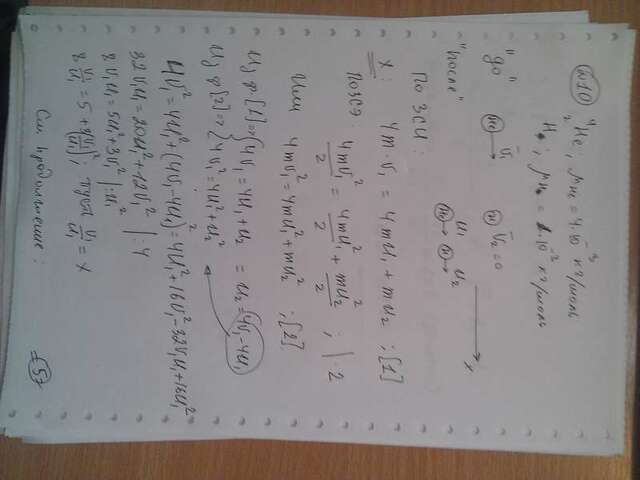 №10 ⁴₂He; μHe = 4·10⁻³ кг/моль
H; μH = 1·10⁻³ кг/моль
"до" He → V̄₁ n V̄₂=0
"после" He → U₁ n → U₂ x
По ЗСИ:
x: 4m·V₁ = 4mU₁ + mU₂ ; [1]
По ЗСЭ: 4mV₁²/2 = 4mU₁²/2 + mU₂²/2 ; |·2
Или 4mV₁² = 4mU₁² + mU₂² ; [2]
Из ф [1] ⇒ { 4V₁ = 4U₁ + U₂ ⇒ U₂ = 4V₁ - 4U₁
Из ф [2] ⇒ { 4V₁² = 4U₁² + U₂²
4V₁² = 4U₁² + (4V₁ - 4U₁)² = 4U₁² + 16V₁² - 32V₁U₁ + 16U₁²
32V₁U₁ = 20U₁² + 12V₁² | :4
8V₁U₁ = 5U₁² + 3V₁² | :U₁²
8 V₁/U₁ = 5 + 3(V₁/U₁)² ; пусть V₁/U₁ = x
См продолжение: